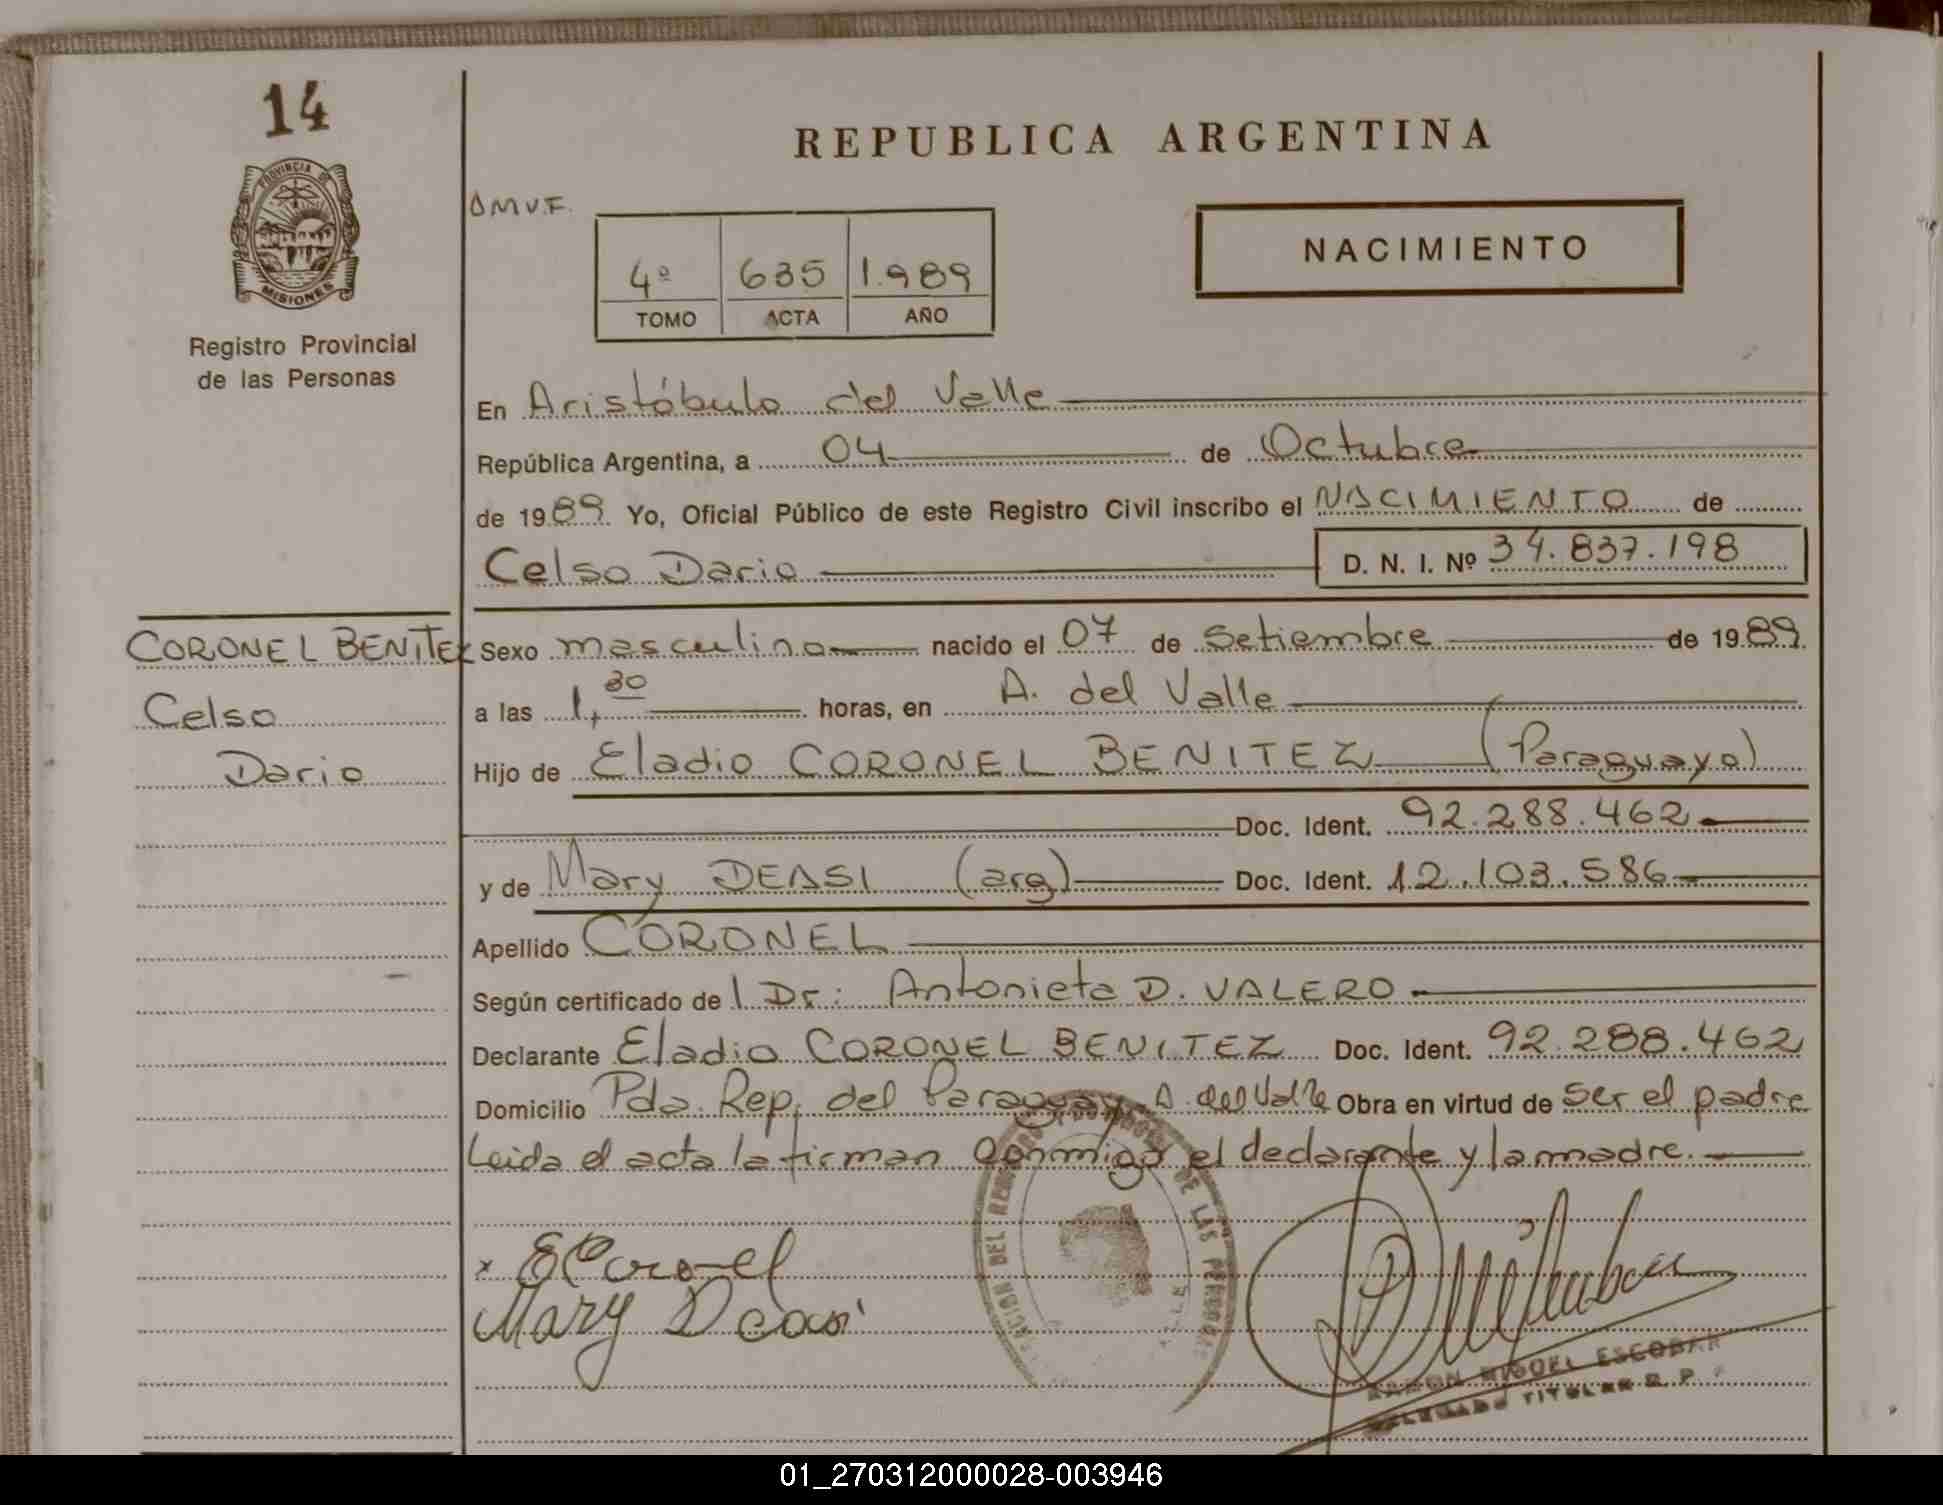 14
PROVINCIA DE
MISIONES
Registro Provincial
de las Personas
REPUBLICA ARGENTINA
NACIMIENTO
4º 635 1.989
TOMO ACTA AÑO
En Aristóbulo del Valle
República Argentina, a 04 de Octubre
de 1989 Yo, Oficial Público de este Registro Civil inscribo el NACIMIENTO de
Celso Dario D. N. I. Nº 34.837.198
CORONEL BENITEZ
Celso
Dario
Sexo masculino nacido el 07 de Setiembre de 1989
a las 1,30 horas, en A. del Valle
Hijo de Eladio CORONEL BENITEZ (Paraguayo)
Doc. Ident. 92.288.462
y de Mary DEASI (arg) Doc. Ident. 12.103.586
Apellido CORONEL
Según certificado de l Dr: Antonieta D. VALERO
Declarante Eladio CORONEL BENITEZ Doc. Ident. 92.288.462
Domicilio Pda. Rep. del Paraguay A. del Valle Obra en virtud de ser el padre
Leida el acta la firman conmigo el declarante y la madre.
x E Coronel
Mary Deasi
DE LAS PERSONAS
RAMON MIGUEL ESCOBAR
DELEGADO TITULAR R. P.
01_270312000028-003946